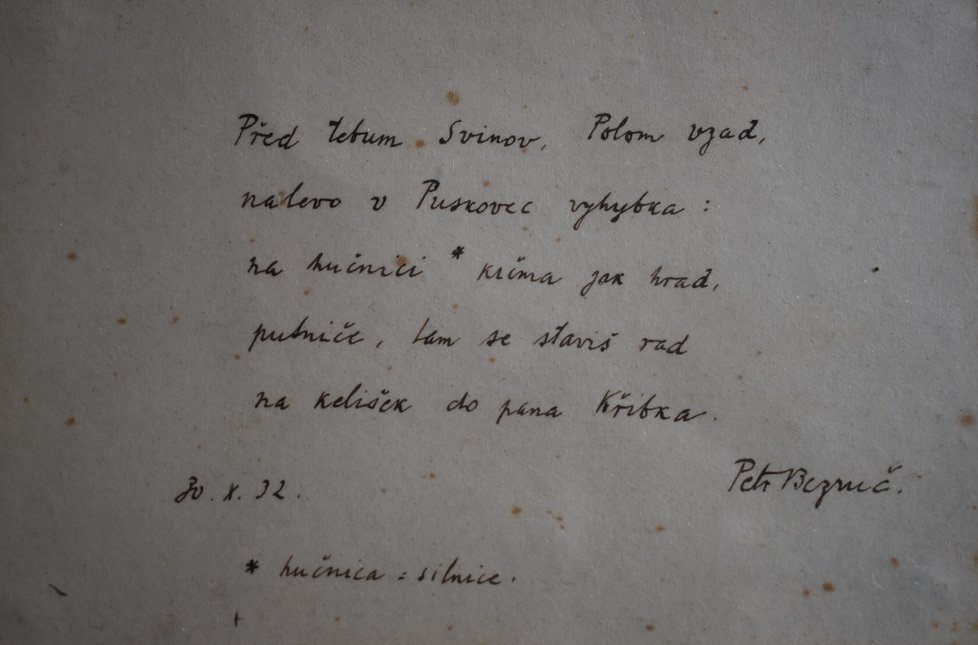 Před tebum Svinov, Polom vzad,
nalevo v Puskovec vyhybka :
na hučnici * krčma jak hrad,
putniče, tam se staviš rad
na kelišek do pana Křibka.
30. X. 32.
Petr Bezruč.
* hučnica = silnice.